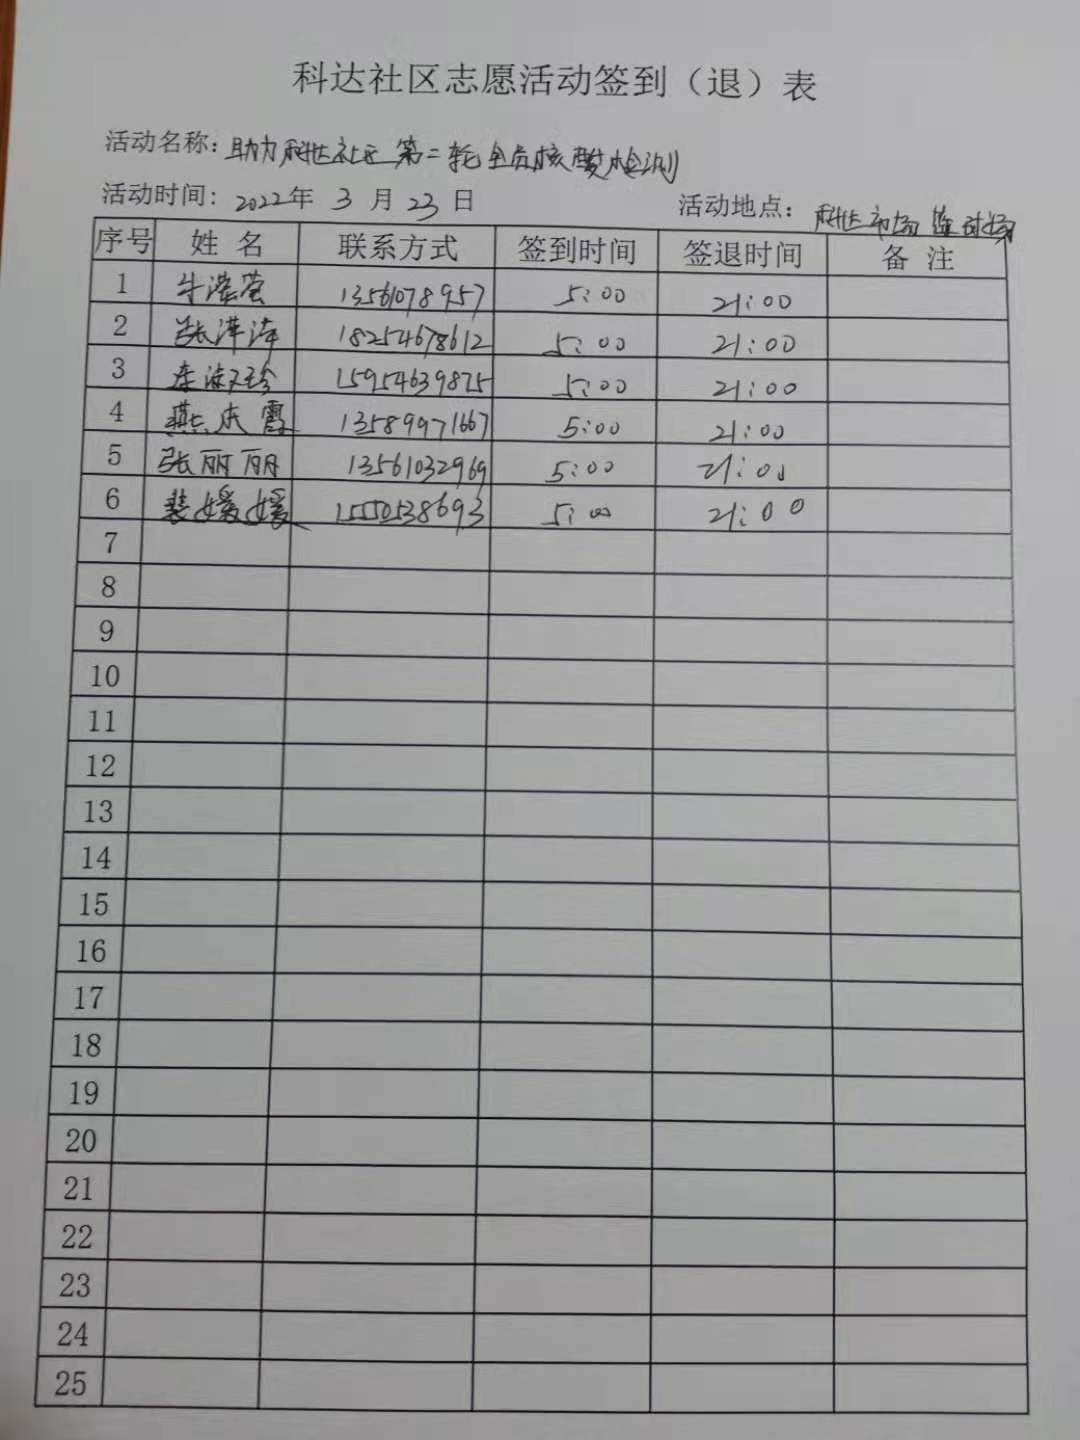 科达社区志愿活动签到（退）表
活动名称：助力科达社区第二轮全员核酸检测
活动时间：2022年 3 月 23 日 活动地点：科达市场
序号 姓 名 联系方式 签到时间 签退时间 备 注
1 牛滢莹 13561078957 5:00 21:00
2 张萍萍 18254678612 5:00 21:00
3 15954639825 5:00 21:00
4 燕杰霞 13589971667 5:00 21:00
5 张丽丽 13561032969 5:00 21:00
6 裴媛媛 15550538693 5:00 21:00
7
8
9
10
11
12
13
14
15
16
17
18
19
20
21
22
23
24
25